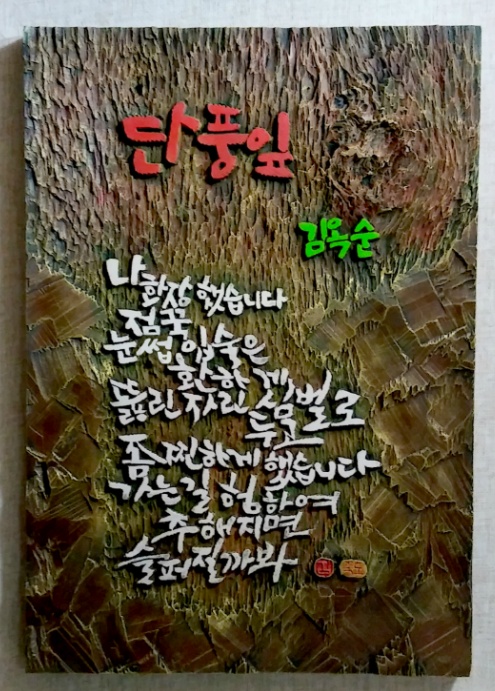 단풍잎
김옥순
나 화장 했습니다
점꾹
눈썹 입술은
환하게
뚫린 자린 심벌로
두고
좀 찐하게 했습니다
가는 길 험하여
추해지면
슬퍼질까봐